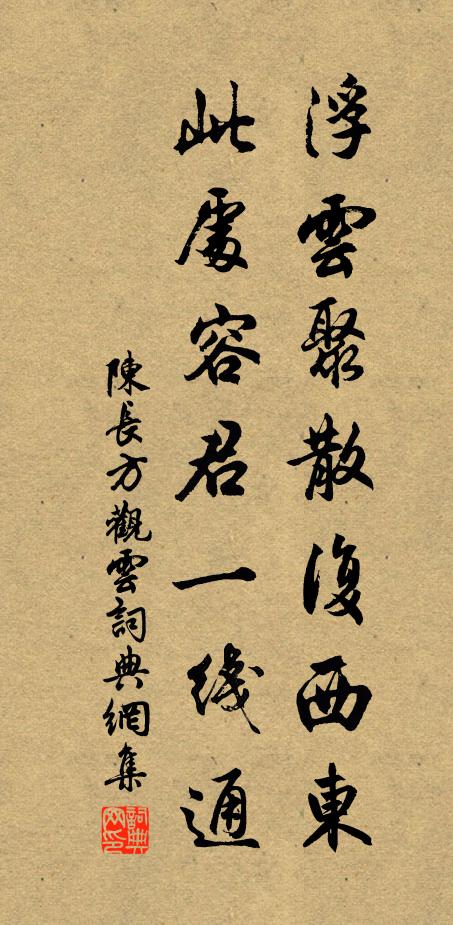 浮雲聚散復西東
此處容君一线通
陳長方觀雲詞典網集
詞典網印